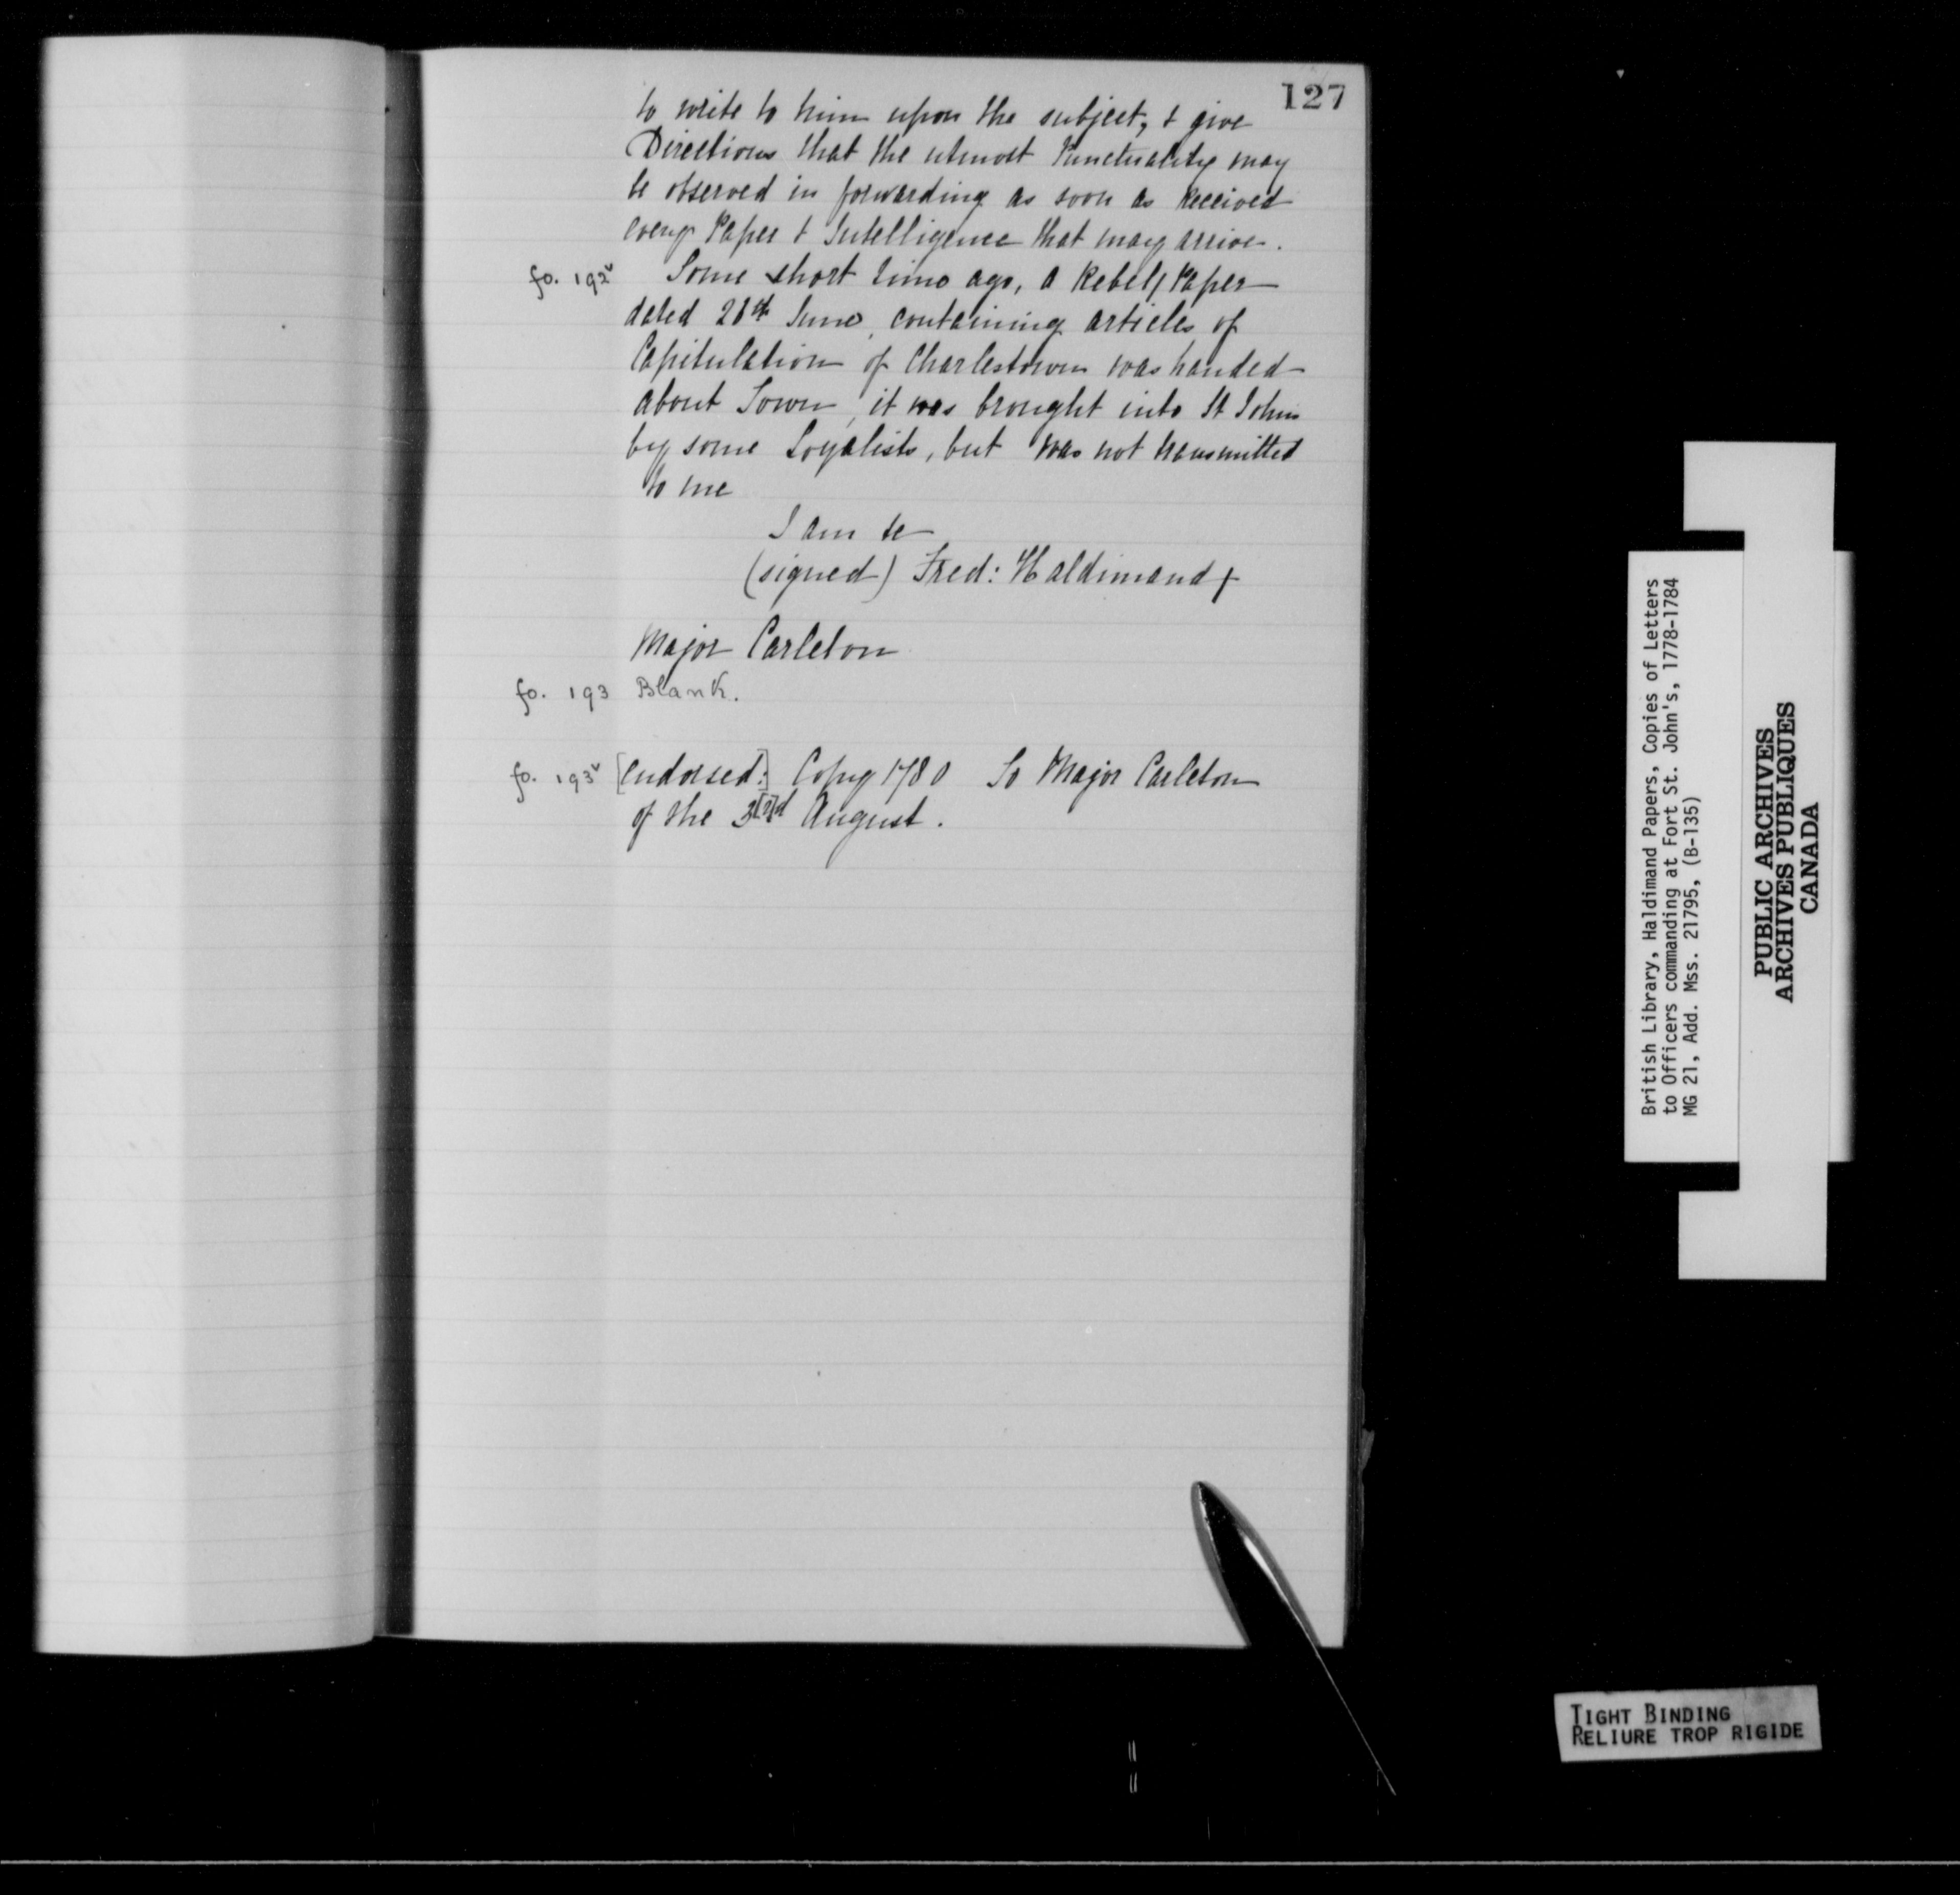 127
to write to him upon the subject, & give
Directions that the utmost Punctuality may
be observed in forwarding as soon as Received
every Paper & Intelligence that may arrive.
fo. 192v Some short time ago, a Rebell Paper
dated 28th June, containing articles of
Capitulation of Charlestown was handed
about Town, it was brought into St Johns
by some Loyalists, but was not transmitted
to me
I am &c
(signed) Fred: Haldimand
Major Carleton
fo. 193 Blank.
fo. 193v [endorsed:] Copy 1780 To Major Carleton
of the 3[?]d August.
British Library, Haldimand Papers, Copies of Letters
to Officers commanding at Fort St. John's, 1778-1784
MG 21, Add. Mss. 21795, (B-135)
PUBLIC ARCHIVES
ARCHIVES PUBLIQUES
CANADA
TIGHT BINDING
RELIURE TROP RIGIDE